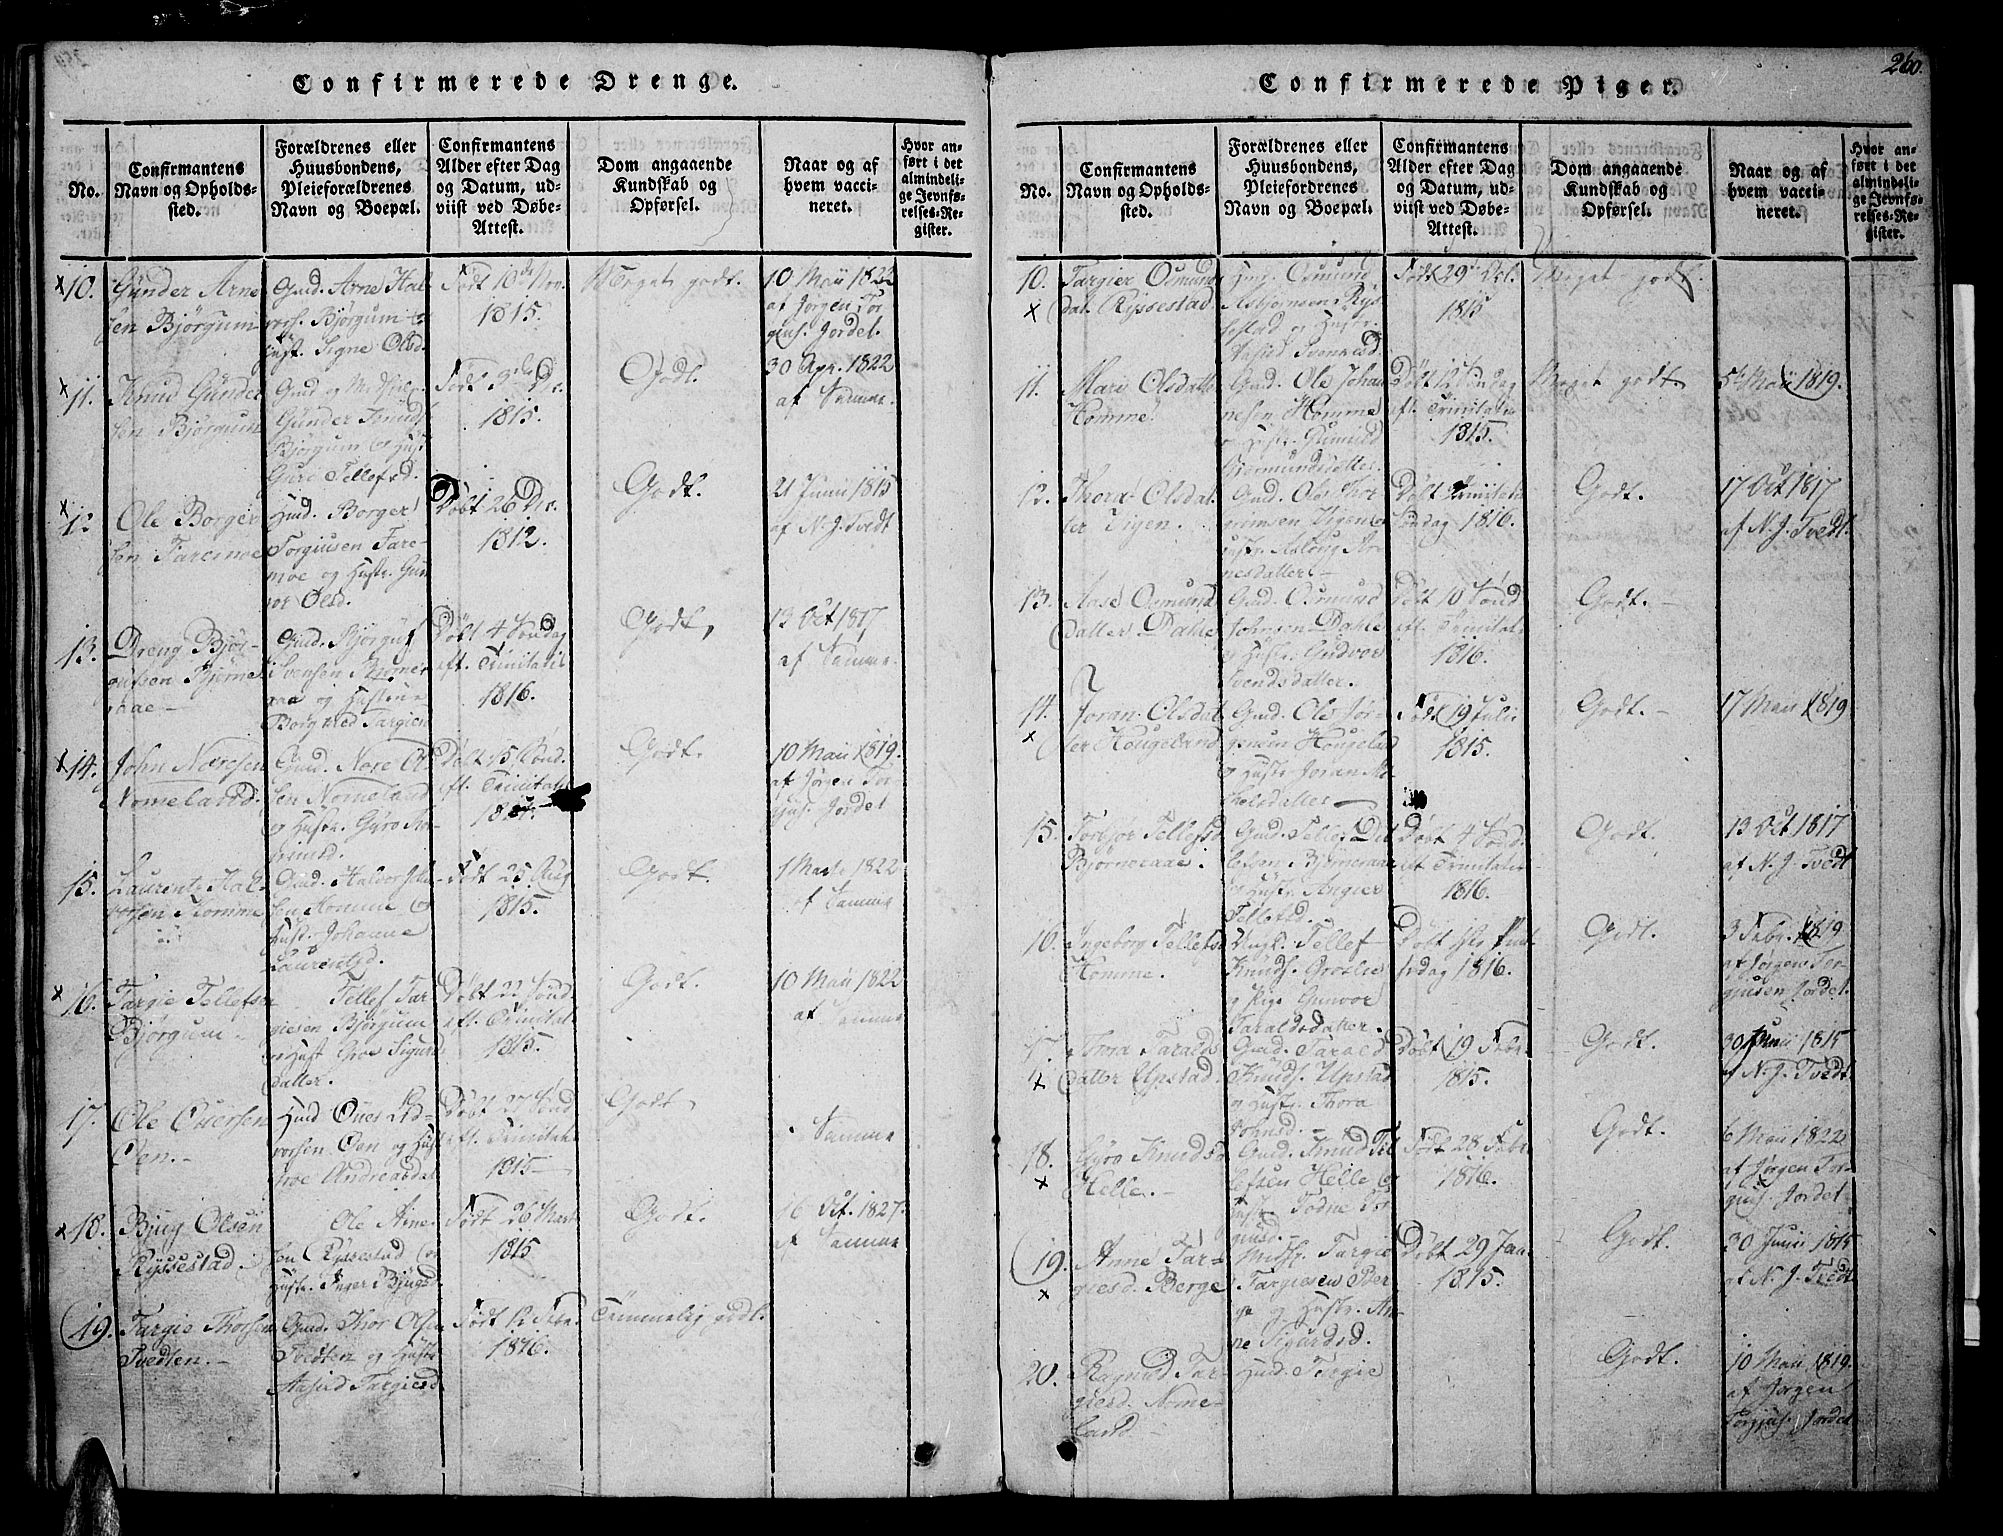 260.
Confirmerede Drenge.
No.
Confirmantens
Navn og Opholds-
sted.
Forældrenes eller
Huusbondens,
Pleieforældrenes
Navn og Boepæl.
Confirmantens
Alder efter Dag
og Datum, ud-
viist ved Døbe-
Attest.
Dom angaaende
Kundskab og
Opførsel.
Naar og af
hvem vacci-
neret.
Hvor an-
ført i det
almindeli-
ge Jevnfø-
relses-Re-
gister.
x10.
Gunder Arne
sen Bjørgum
Gmd. Arne Hal
vors. Bjørgum
Hust. Signe Olsd.
Født 10de Nov.
1815.
Meget godt.
10 Maii 1822
af Jørgen Tor
gius. Jordet
x11.
Knud Gunder
sen Bjørgum
Gmd og
Gunder Knuds
Bjørgum og Hust
Guro Tellefsd.
Født 3de
1815.
Godt.
30 Apr. 1822
af Samme.
x12
Ole Borger
sen
Hmd. Borger
Torgiusen
moe og Hustr. Gun
vor Olsd.
Døbt 26 De.
1812.
Godt.
21 Junii 1815
af N. J. Tvedt
13.
Dreng Bjør-
gufsen Bjørne
raae -
Gmd. Bjørguf
Svensen Bjørne
raa og Hustrue
Borghild Targies
Døbt 4 Søndag
eft. Trinitatis
1816.
Godt,
13 Oct 1817
af Samme.
x14.
John Noresen
Nomeland.
Gmd. Nore O
sen Nomeland
og Hustr. Gyro
Døbt 15 Sønd.
eft. Trinitatis
Godt.
10 Maii 1819.
af Jørgen Tor
gius. Jordet
15.
Laurents Hal-
vorsen Homme
Gmd. Halvor
sen Homme og
Hust. Johanne
Laurentsd.
Født 25 Aug
1815.
Godt.
1 Marts 1822
af Samme
x16.
Targie Tellefsen
Bjørgum -
Tellef Tar
giesen Bjørgum
og Hust Groe Sigurds
datter.
Døbt 22 Sønd.
eft. Trinitat.
1815.
Godt
10 Maii 1822
af Samme
17.
Ole
Øen.-
Hmd
Øen og Hust
Groe Andreasdat
Døbt 27 Sønd
eft. Trinitatis
1815-
Godt,
Samme
x18.
Bjug Olsen
Ryssestad.
Ole Arne
sen Ryssestad og
Hustr. Inger Bjugsd.
Født 26 Marts
1815
Godt.
16 Oct. 1827.
af Samme
19.
Targie Thorsen
Tvedten.-
Gmd. Thor Olsen
Tvedten og Hustr
Aasild Targiesd
Født 12 Febr.
1816.
Temmelig godt.
Confirmerede Piger.
No.
Confirmantens
Navn og Opholds-
sted.
Forældrenes eller
Huusbondens,
Pleiefordrenes
Navn og Boepæl.
Confirmantens
Alder efter Dag
og Datum, ud-
viist ved Døbe-
Attest.
Dom angaaende
Kundskab og
Opførsel.
Naar og af
hvem vacci-
neret.
Hvor an-
ført i det
almindeli-
ge Jevnfø-
relses-Re-
gister.
10.
x
Targier Osmunds
dat. Ryssestad
Hmd. Osmund
Asbjørnsen Rys
sestad og Hustr.
Aasild Svennesd
Født 29
1815
Meget godt.
11.
Mari Olsdatter
Homme.
Gmd. Ole Johan
nesen Homme
og Hustr. Gunild
Giermundsdatter
Døbt 12 Søndag
eft. Trinitatis
1815.
Meget godt
5te Maii 1819.
12.
Thora Olsdat
ter Vigen.
Gmd. Ole Thor
grimsen Vigen og
Hustr. Aslaug Ar
nesdatter-
Døbt Trinitatis
Søndag 1816.
Godt.
17 Oct 1817
af N. J. Tvedt.
13.
Aase Osmunds
datter Dahle
Gmd. Osmund
Johnsen Dahle
og Hustr. Gudvor
Svendsdatter.
Døbt 10 Sønd
eft. Trinitatis
1816.
Godt. -
14.
x
Joran Olsdat
ter Hougeland
Gmd. Ole Jør-
gensen Hougeland
og Hustr Joran
Født 19 Julii
1815.
Godt. -
17 Maii 1819
15.
Torbjør Tellefsd
Bjørneraae.
Gmd. Tellef Det
lefsen Bjørneraae
og Hustr. Angier
Tellefsd.
Døbt 4 Sønd.
eft Trinitatis
1816.
Godt.
13 Oct 1817
af N. J. Tvedt
16.
Ingeborg Tellefsd
Homme.
Ungk. Tellef
Knuds. Groslie
og Pige Gunvor
Taraldsdatter.
Døbt
1816.
Godt.
3 Febr. 1819
af Jørgen Tor
giusen Jordet.
17.
x
Torna Taralds
datter Upstad.
Gmd. Tarald
Knuds. Upstad
og Hustr. Thora
Johnsd.-
Døbt 19 Febr.
1815.
Godt.
30 Junii 1815
af N. J. Tvedt
18.
x
Gyro Knudsd
Helle.-
Gmd. Knud Tel
lefsen Helle og
Hustr. Todne Tor
giusd.
Født 28 Febr
1816.
Godt.
6 Maii 1822
af Jørgen Tor-
gius. Jordet
19.
x
Anne Tar-
giesd. Berge
Targie
Targiesen Ber
ge og Hustr. An-
ne Sigurdsd.
Døbt 29 Jan.
1815.
Godt.
30 Junii 1815
af N. J. Tvedt
20.
Ragnild Tar-
giesd. Nome-
land -
Hmd. Targie
Godt.
10 Maii 1819.
af Jørgen
Torgius. Jordet